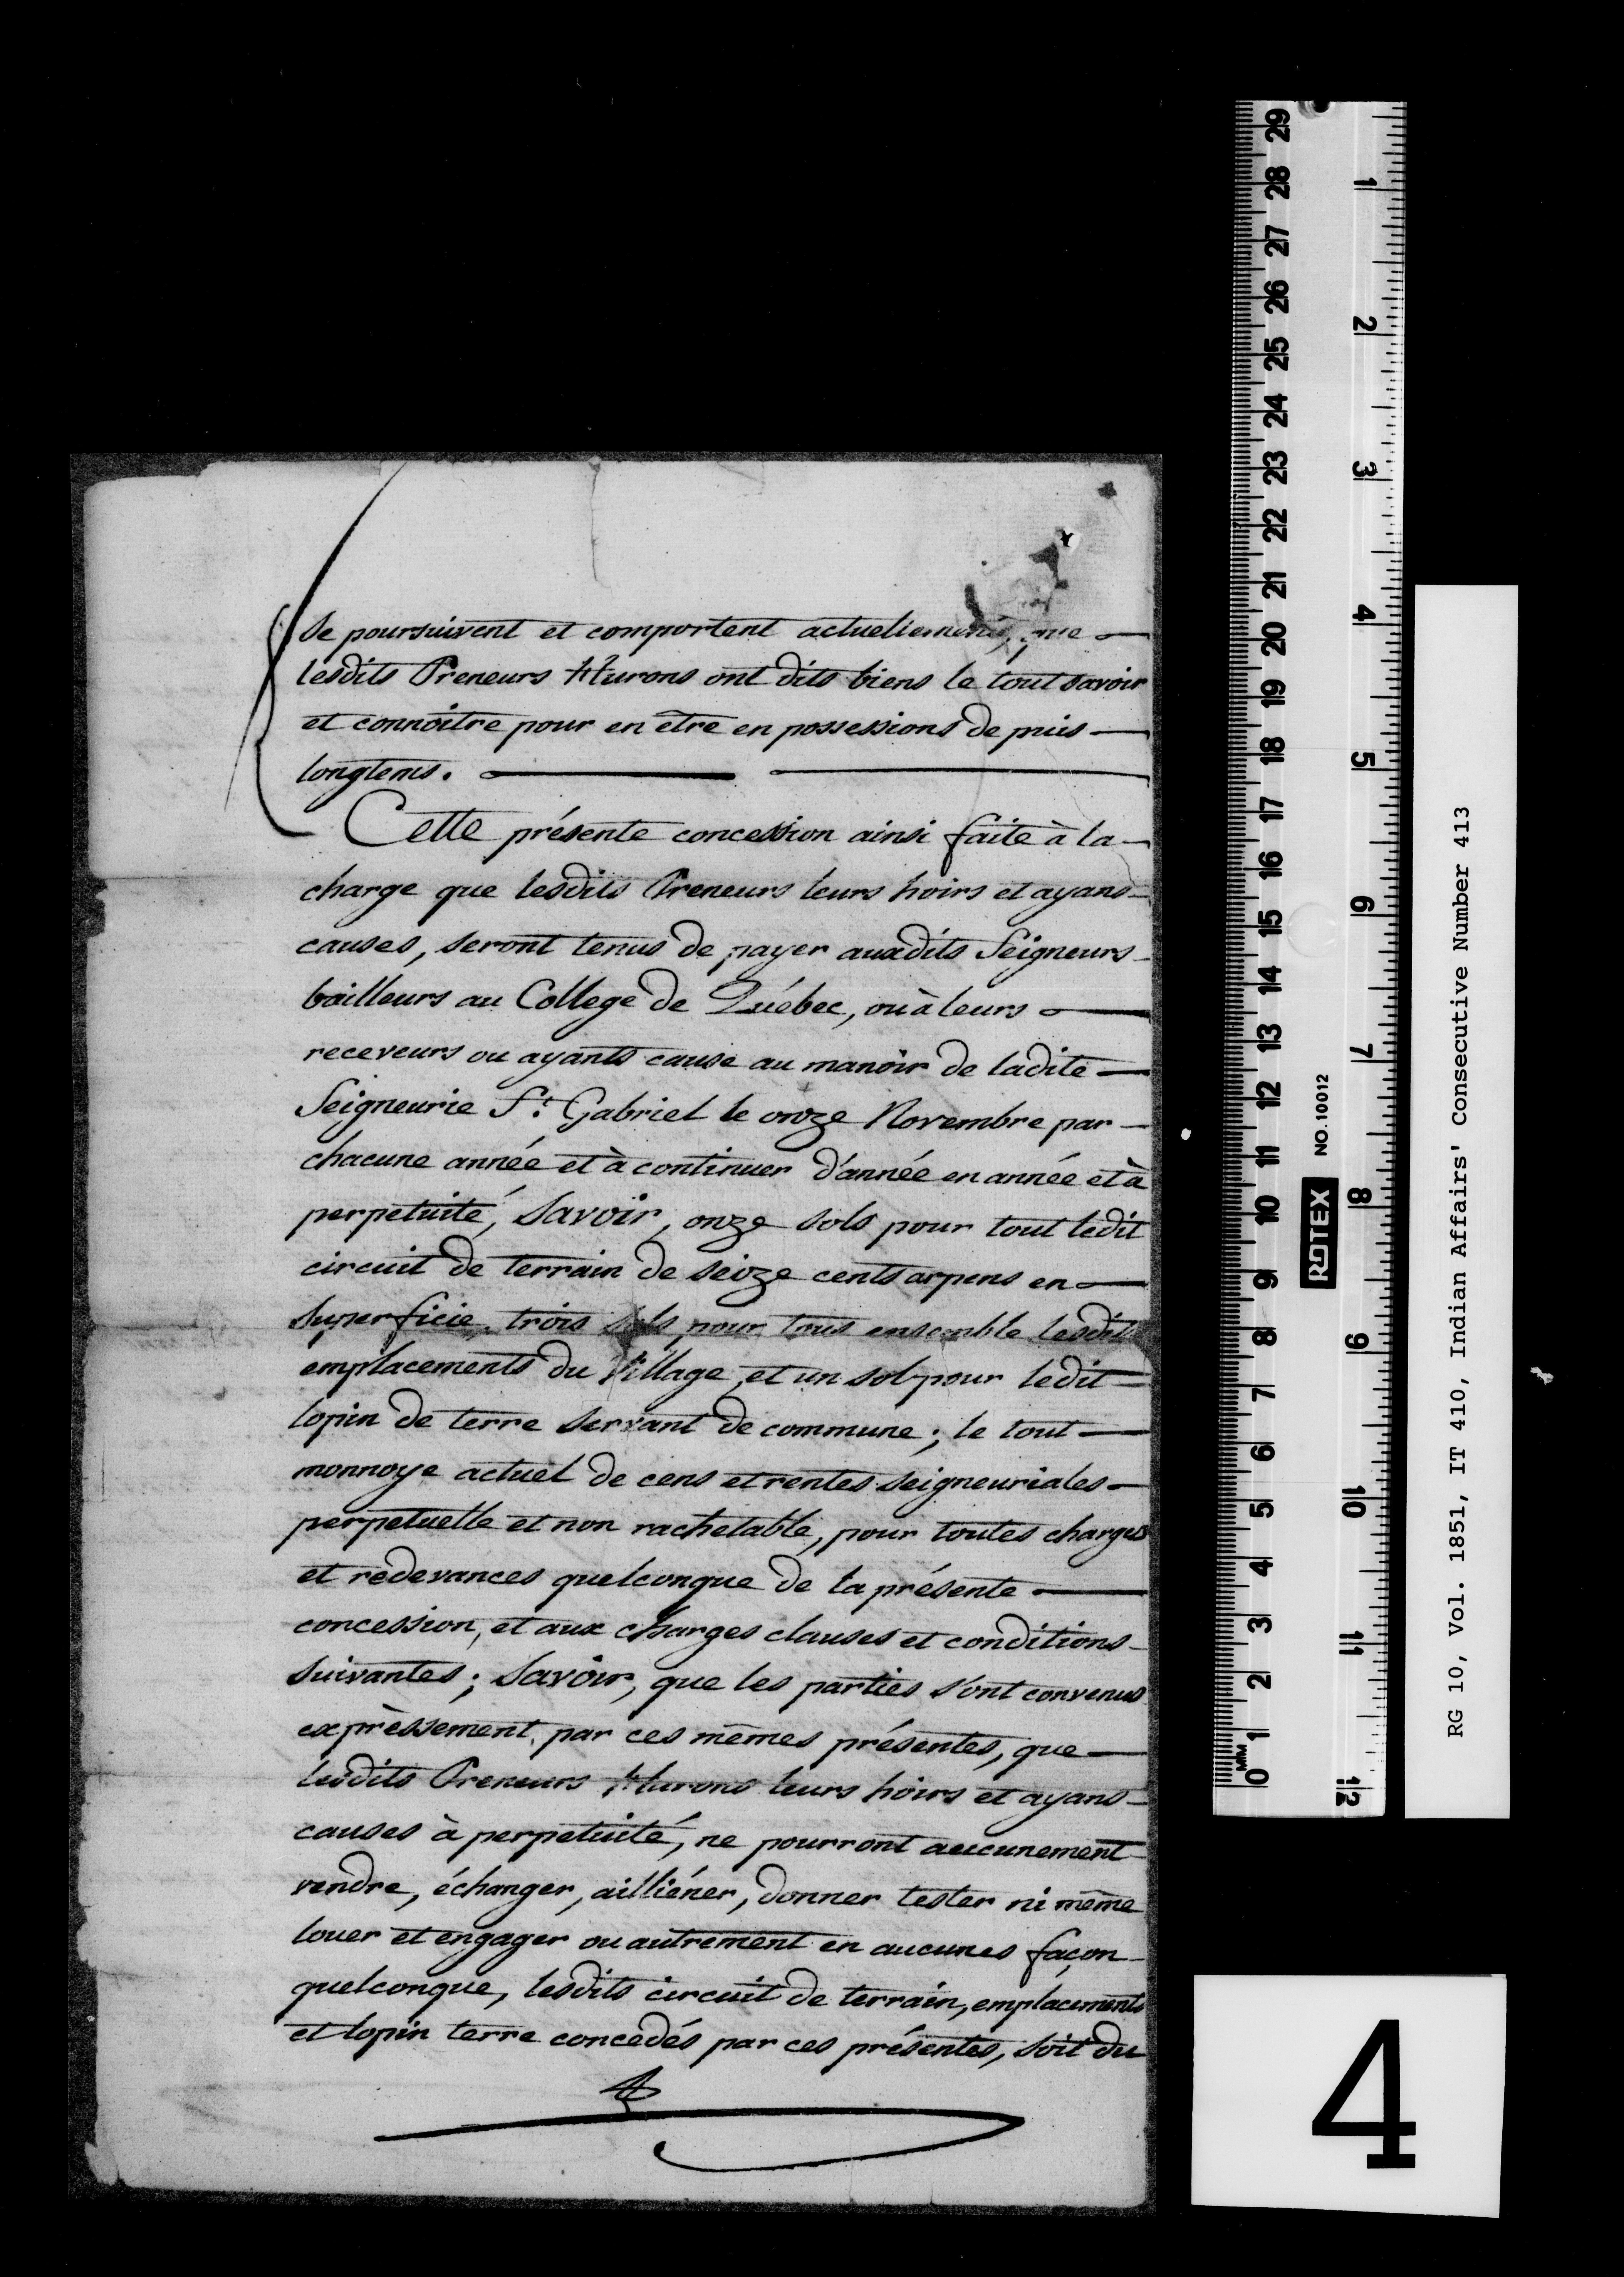 se poursuivent et comportent actuellement, que
lesdits Preneurs Hurons ont dits biens le tout savoir
et connoître pour en être en possessions de puis
longtems.
Cette présente concession ainsi faite à la
charge que lesdits Preneurs leurs hoirs et ayans
causes, seront tenus de payer auxdits Seigneurs
bailleurs au College de Québec, ou à leurs
receveurs ou ayants cause au manoir de ladite
Seigneurie St. Gabriel le onze Novembre par
chacune année et à continuer d'année en année et à
perpetuité, Savoir, onze sols pour tout ledit
circuit de terrain de seize cents arpens en
superficie, trois sols pour tous ensemble lesdits
emplacements du Village, et un sol pour ledit
lopin de terre servant de commune; le tout
monnoye actuel de cens et rentes seigneuriales
perpetuelle et non rachetable, pour toutes charges
et redevances quelconque de la présente
concession, et aux charges clauses et conditions
suivantes; Savoir, que les parties sont convenus
expressément par ces mêmes présentes, que
lesdits Preneurs Hurons leurs hoirs et ayans
causes à perpetuité, ne pourront aucunement
vendre, échanger, ailliéner, donner tester ni même
louer et engager ou autrement en aucunes façon
quelconque, lesdits circuit de terrain, emplacements
et lopin terre concedés par ces présentes, soit du
RG 10, Vol. 1851, IT 410, Indian Affairs' Consecutive Number 413
ROTEX NO. 10012
MM
0 1 2 3 4 5 6 7 8 9 10 11 12 13 14 15 16 17 18 19 20 21 22 23 24 25 26 27 28 29
1 2 3 4 5 6 7 8 9 10 11 12
4